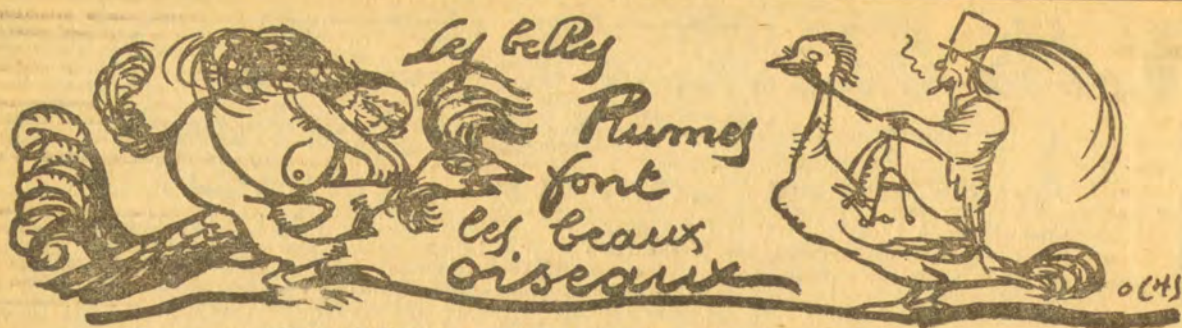 Les belles
Plumes
font
les beaux
oiseaux
OCHS